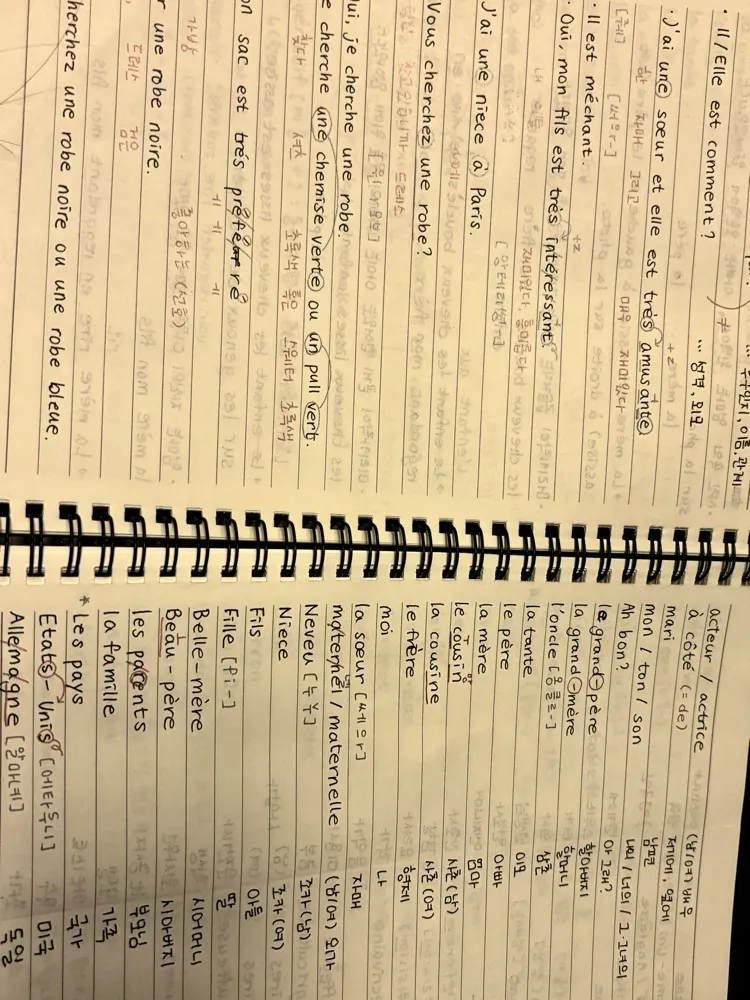 · Il/Elle est comment? ... 성격, 외모
· J'ai une sœur et elle est très amusante
· Il est méchant.
[쎄으ㄹ-]
· Oui, mon fils est très intéressant.
+z
J'ai une niece à Paris.
[앙테리쌍ㅌ]
Vous cherchez une robe?
드레스
ui, je cherche une robe.
e cherche une chemise verte ou un pull vert.
찾다 셔츠 초록색 혹은 스웨터 초록색
on sac est trés préféré
가방 ㅔ ㅔ ㅔ 좋아하는 (선호)
r une robe noire.
드레스 검은
herchez une robe noire ou une robe bleue.
acteur / actrice (남/여) 배우
à côté (=de) 옆에
mari 남편
mon / ton / son 나의 / 너의 / 그·그녀의
Ah bon? 아 그래?
le grand-père 할아버지
la grand-mère 할머니
l'oncle [옹클르-] 삼촌
la tante 이모
le père 아빠
la mère 엄마
le cousin 사촌 (남)
la cousine 사촌 (여)
le frère 형제
moi 나
la sœur [쎄으ㄹ] 자매
maternel / maternelle (남/여) 외가
Neveu [느뵈] 조카 (남)
Niece 조카 (여)
Fils 아들
Fille [fi-] 딸
Belle-mère 시어머니
Beau-père 시아버지
les parents 부모님
la famille 가족
* Les pays 국가
Etats-Unis [에타쥬니] 미국
Allemagne [알마녜] 독일